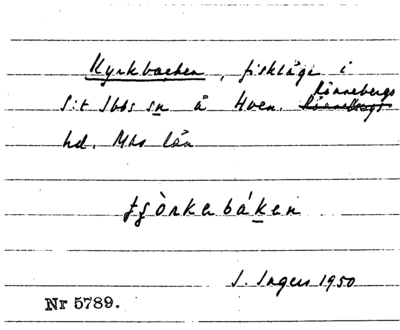 Kyrkbacken, fiskläge i
S:t Ibbs sn å Hven. Rönnebergs
hd. Mhs län
I. Ingers 1950
Nr 5789.